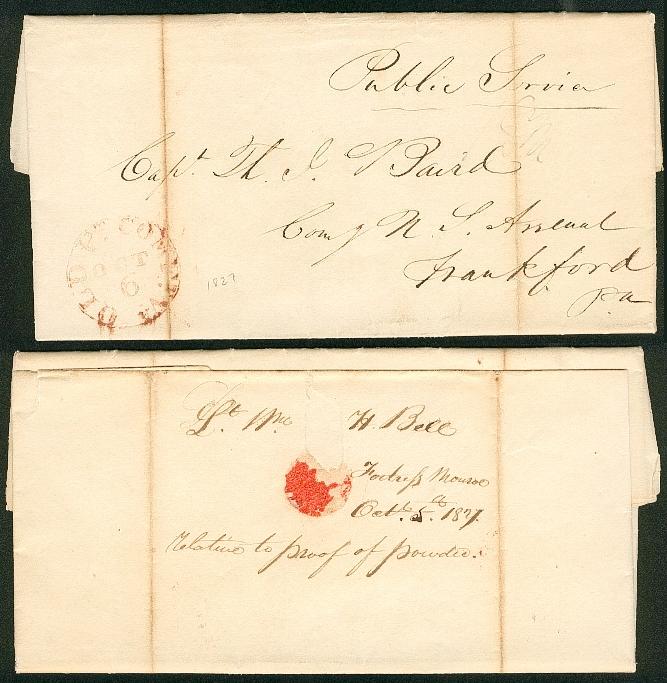 Public Service
Capt. Th. J. Baird
Comg U. S. Arsenal
Frankford
Pa
OLD PT COMFT. Va
OCT
6
1827
Lt. Wm H. Bell
Fortress Monroe
Octb. 5th 1827.
relative to proof of powder.